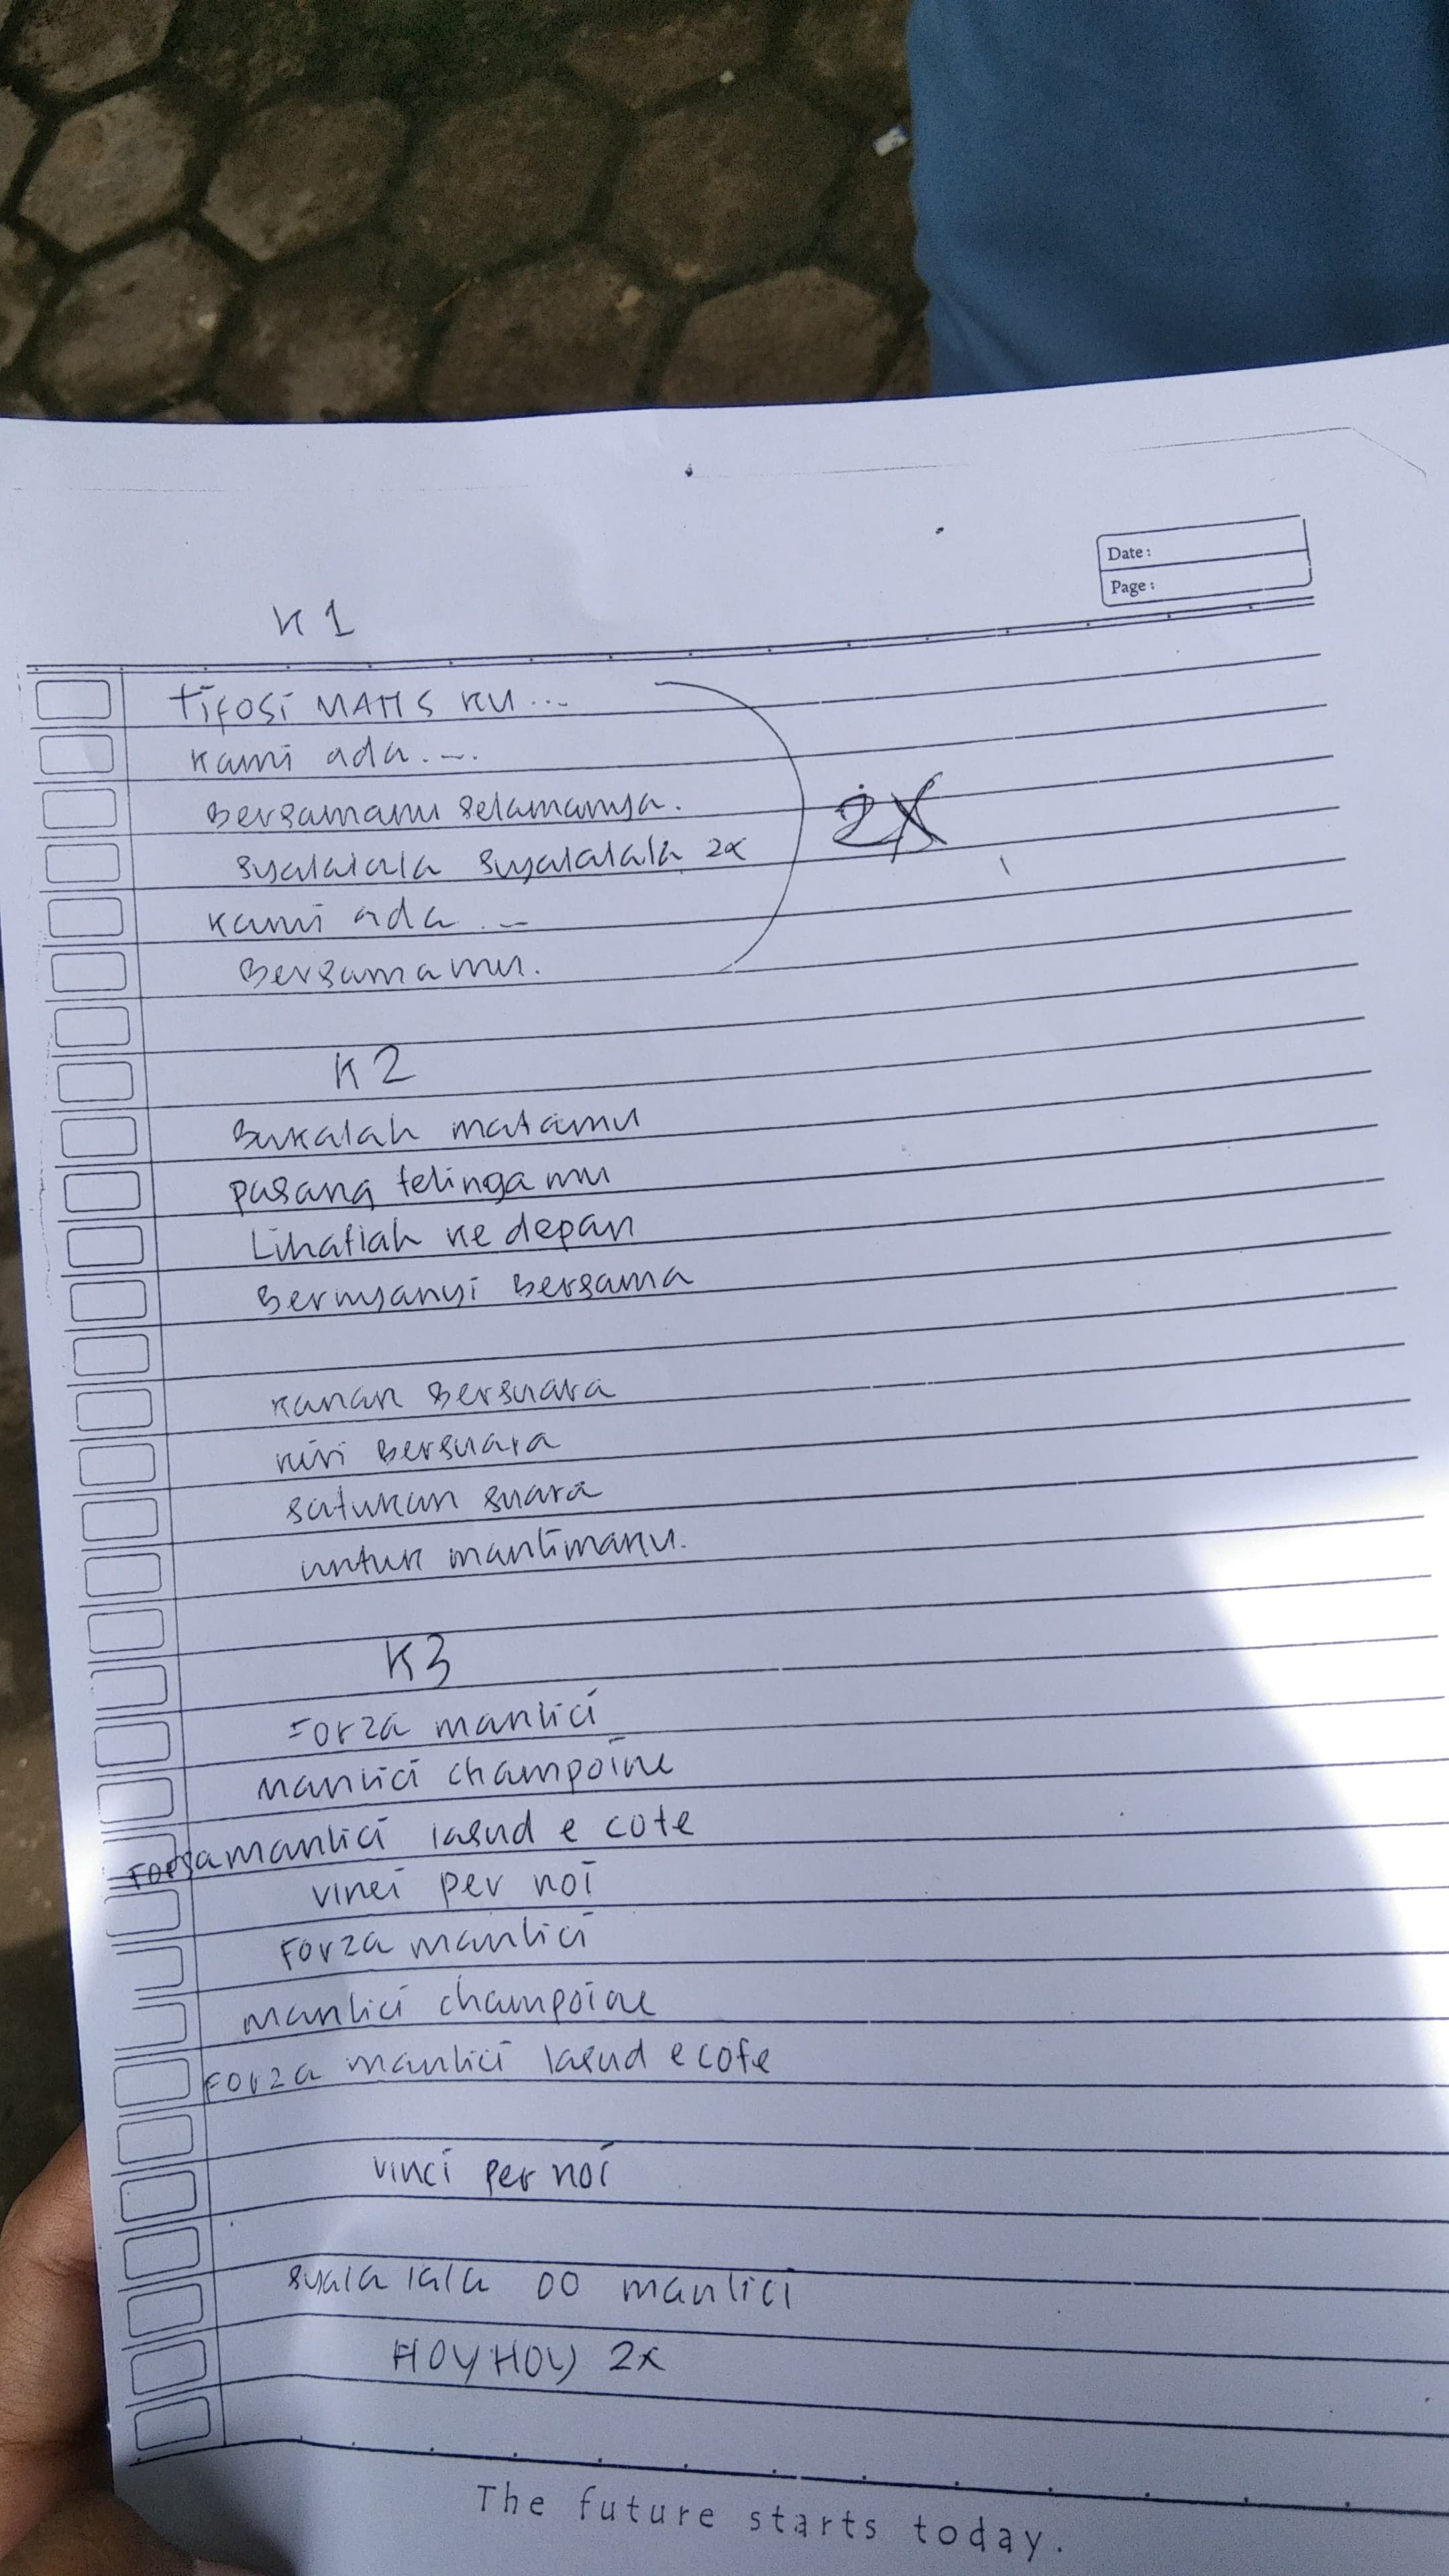 Date:
Page:
K1
Tifosi MAHS KU...
Kami ada...
Bersamamu selamanya.
syalalala syalalalala 2x
2X
Kami ada...
Bersamamu.
K2
Bukalah matamu
pasang telingamu
Lihatlah ke depan
Bernyanyi Bersama
Kanan Bersuara
Kiri Bersuara
satukan suara
untuk manlimanu.
K3
Forza manlici
Manlici champoine
Forsa manlici lasud e cote
vinci per noi
Forza manlici
manlici champoine
Forza manlici lasud e cote
vinci per noi
syala lala OO manlici
HOY HOY 2x
The future starts today.